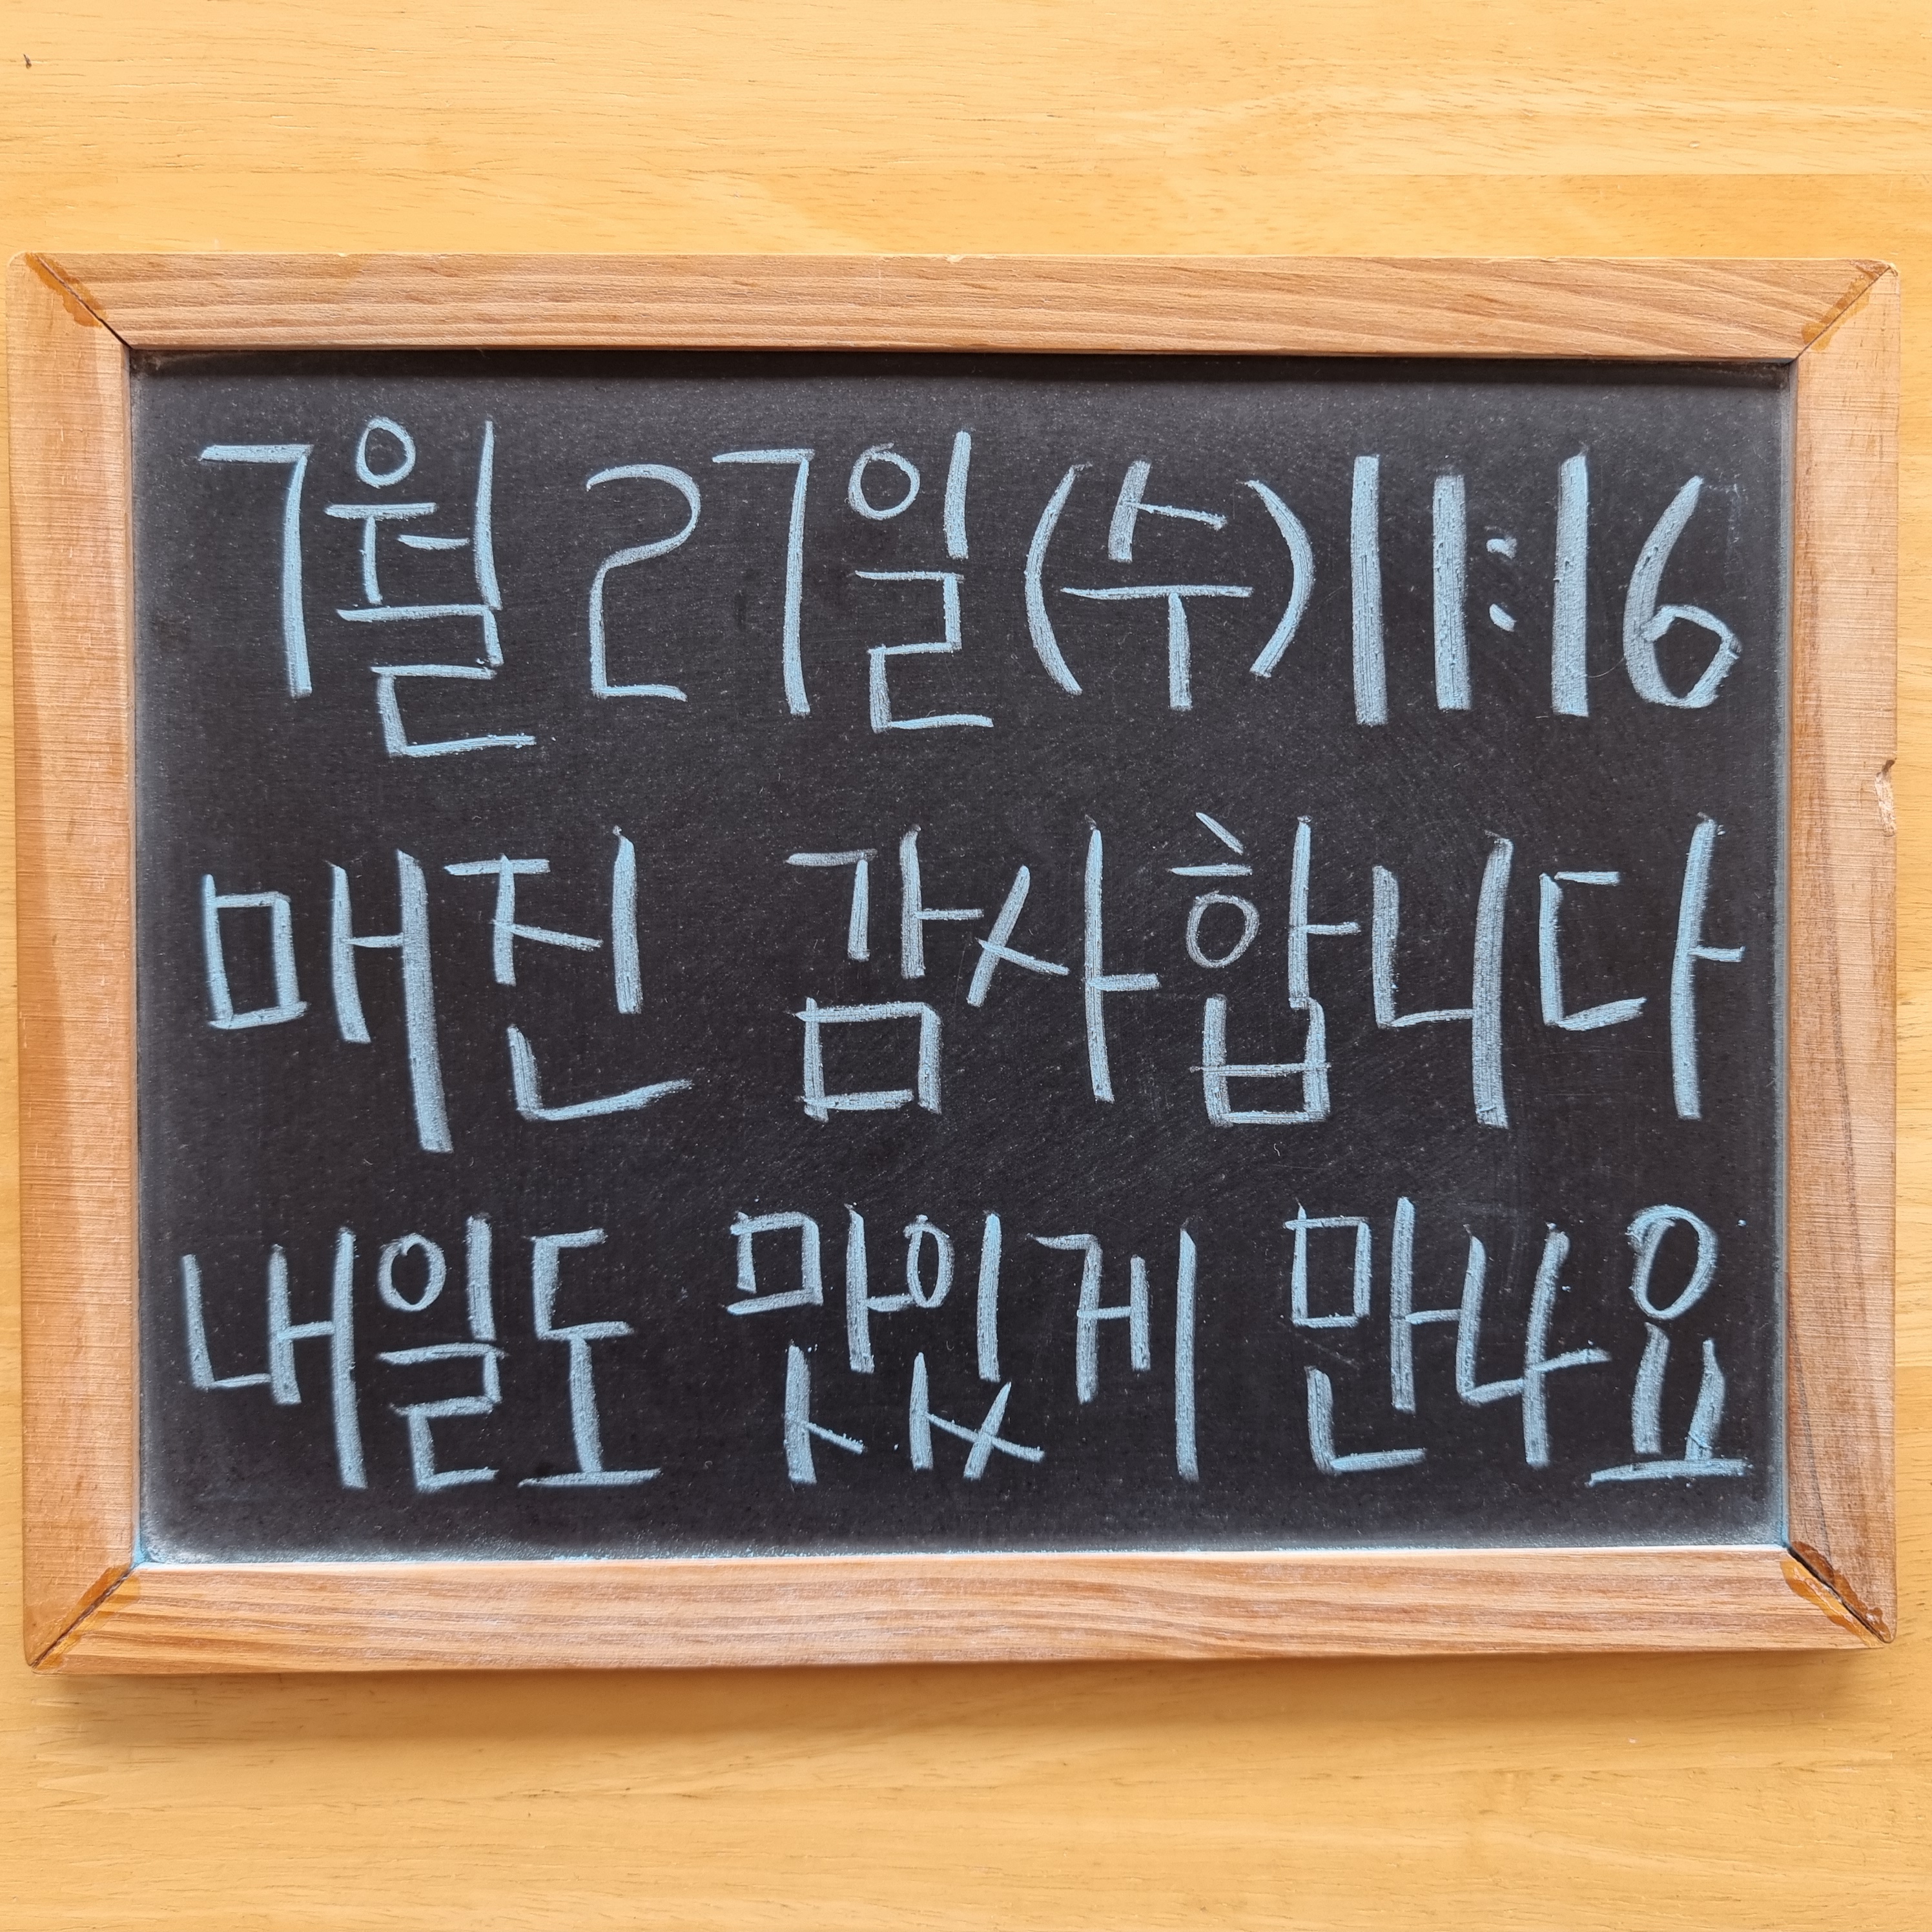 7월 27일(수)11:16
매진 감사합니다
내일도 맛있게 만나요